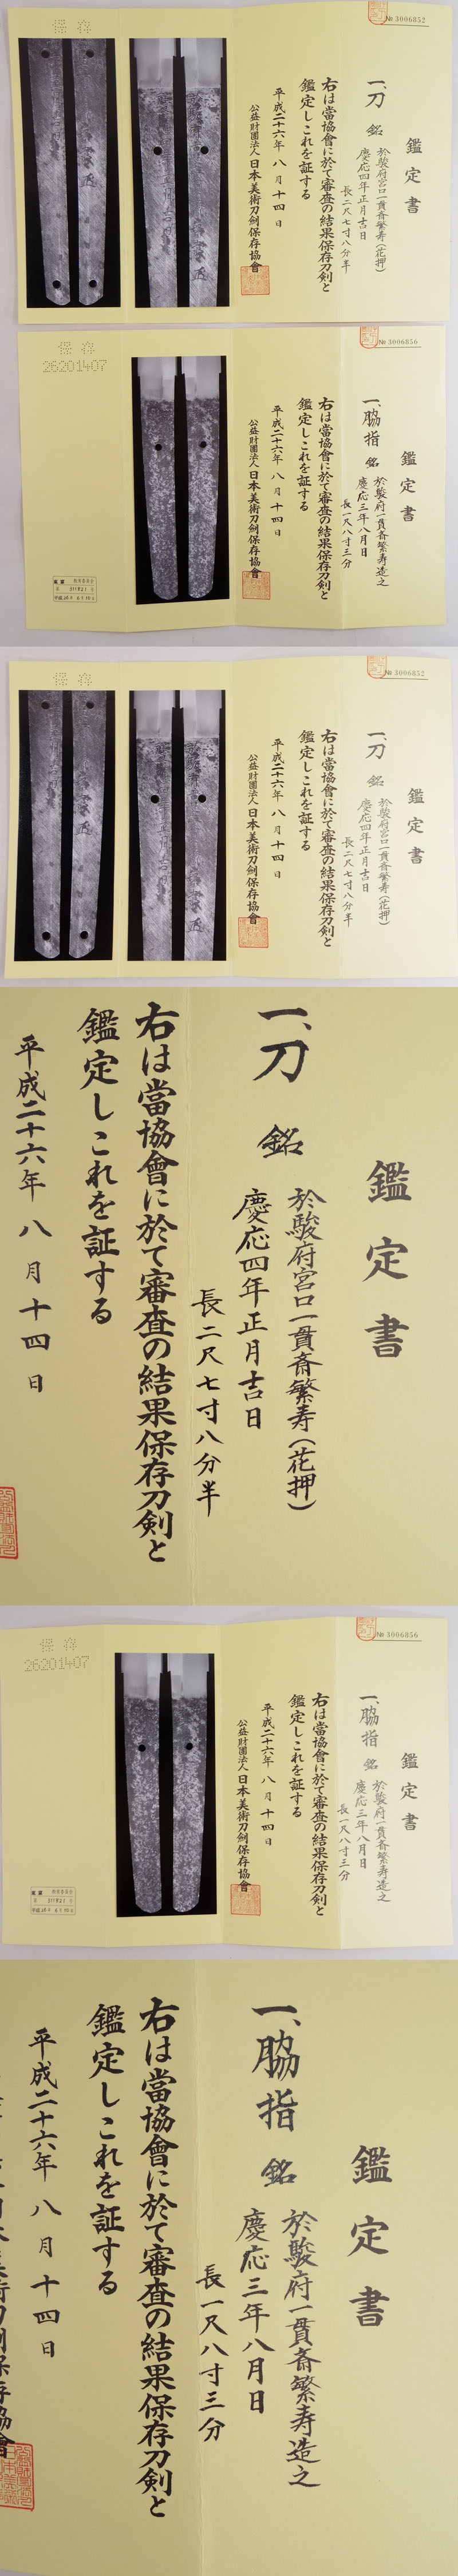 № 3006852
鑑定書
一、刀 銘
於駿府宮口一貫斎繁寿(花押)
慶応四年正月吉日
長二尺七寸八分半
右は當協會に於て審査の結果保存刀剣と
鑑定しこれを証する
平成二十六年八月十四日
公益財團法人日本美術刀劍保存協會
保存
№ 3006856
鑑定書
一、脇指 銘
於駿府一貫斎繁寿造之
慶応三年八月日
長一尺八寸三分
右は當協會に於て審査の結果保存刀剣と
鑑定しこれを証する
平成二十六年八月十四日
公益財團法人日本美術刀劍保存協會
保存
26201407
№ 3006852
鑑定書
一、刀 銘
於駿府宮口一貫斎繁寿(花押)
慶応四年正月吉日
長二尺七寸八分半
右は當協會に於て審査の結果保存刀剣と
鑑定しこれを証する
平成二十六年八月十四日
公益財團法人日本美術刀劍保存協會
保存
鑑定書
一、刀 銘
於駿府宮口一貫斎繁寿(花押)
慶応四年正月吉日
長二尺七寸八分半
右は當協會に於て審査の結果保存刀剣と
鑑定しこれを証する
平成二十六年八月十四日
№ 3006856
鑑定書
一、脇指 銘
於駿府一貫斎繁寿造之
慶応三年八月日
長一尺八寸三分
右は當協會に於て審査の結果保存刀剣と
鑑定しこれを証する
平成二十六年八月十四日
公益財團法人日本美術刀劍保存協會
保存
26201407
鑑定書
一、脇指 銘
於駿府一貫斎繁寿造之
慶応三年八月日
長一尺八寸三分
右は當協會に於て審査の結果保存刀剣と
鑑定しこれを証する
平成二十六年八月十四日